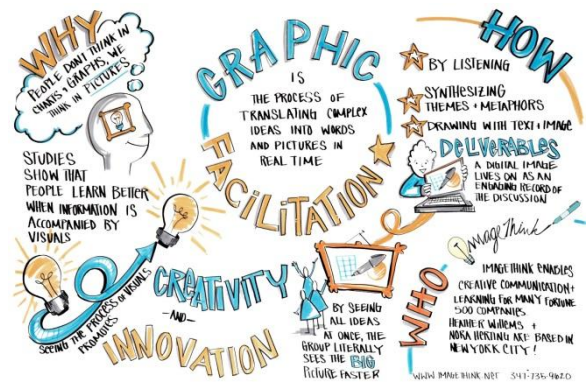 WHY
PEOPLE DON'T THINK IN
CHARTS & GRAPHS, WE
THINK IN PICTURES
STUDIES
SHOW THAT
PEOPLE LEARN BETTER
WHEN INFORMATION IS
ACCOMPANIED BY
VISUALS
SEEING THE PROCESS OF VISUALS
PROMOTES
CREATIVITY
-AND-
INNOVATION
GRAPHIC
IS
THE PROCESS OF
TRANSLATING COMPLEX
IDEAS INTO WORDS
AND PICTURES IN
REAL TIME
FACILITATION
BY SEEING
ALL IDEAS
AT ONCE, THE
GROUP LITERALLY
SEES THE BIG
PICTURE FASTER
HOW
BY LISTENING
SYNTHESIZING
THEMES + METAPHORS
DRAWING WITH TEXT + IMAGE
DELIVERABLES
A DIGITAL IMAGE
LIVES ON AS AN
ENGAGING RECORD OF
THE DISCUSSION
ImageThink
WHO
IMAGETHINK ENABLES
CREATIVE COMMUNICATION +
LEARNING FOR MANY FORTUNE
500 COMPANIES
HEATHER WILLEMS +
NORA HERTING ARE BASED IN
NEW YORK CITY!
WWW.IMAGETHINK.NET 347-735-9620